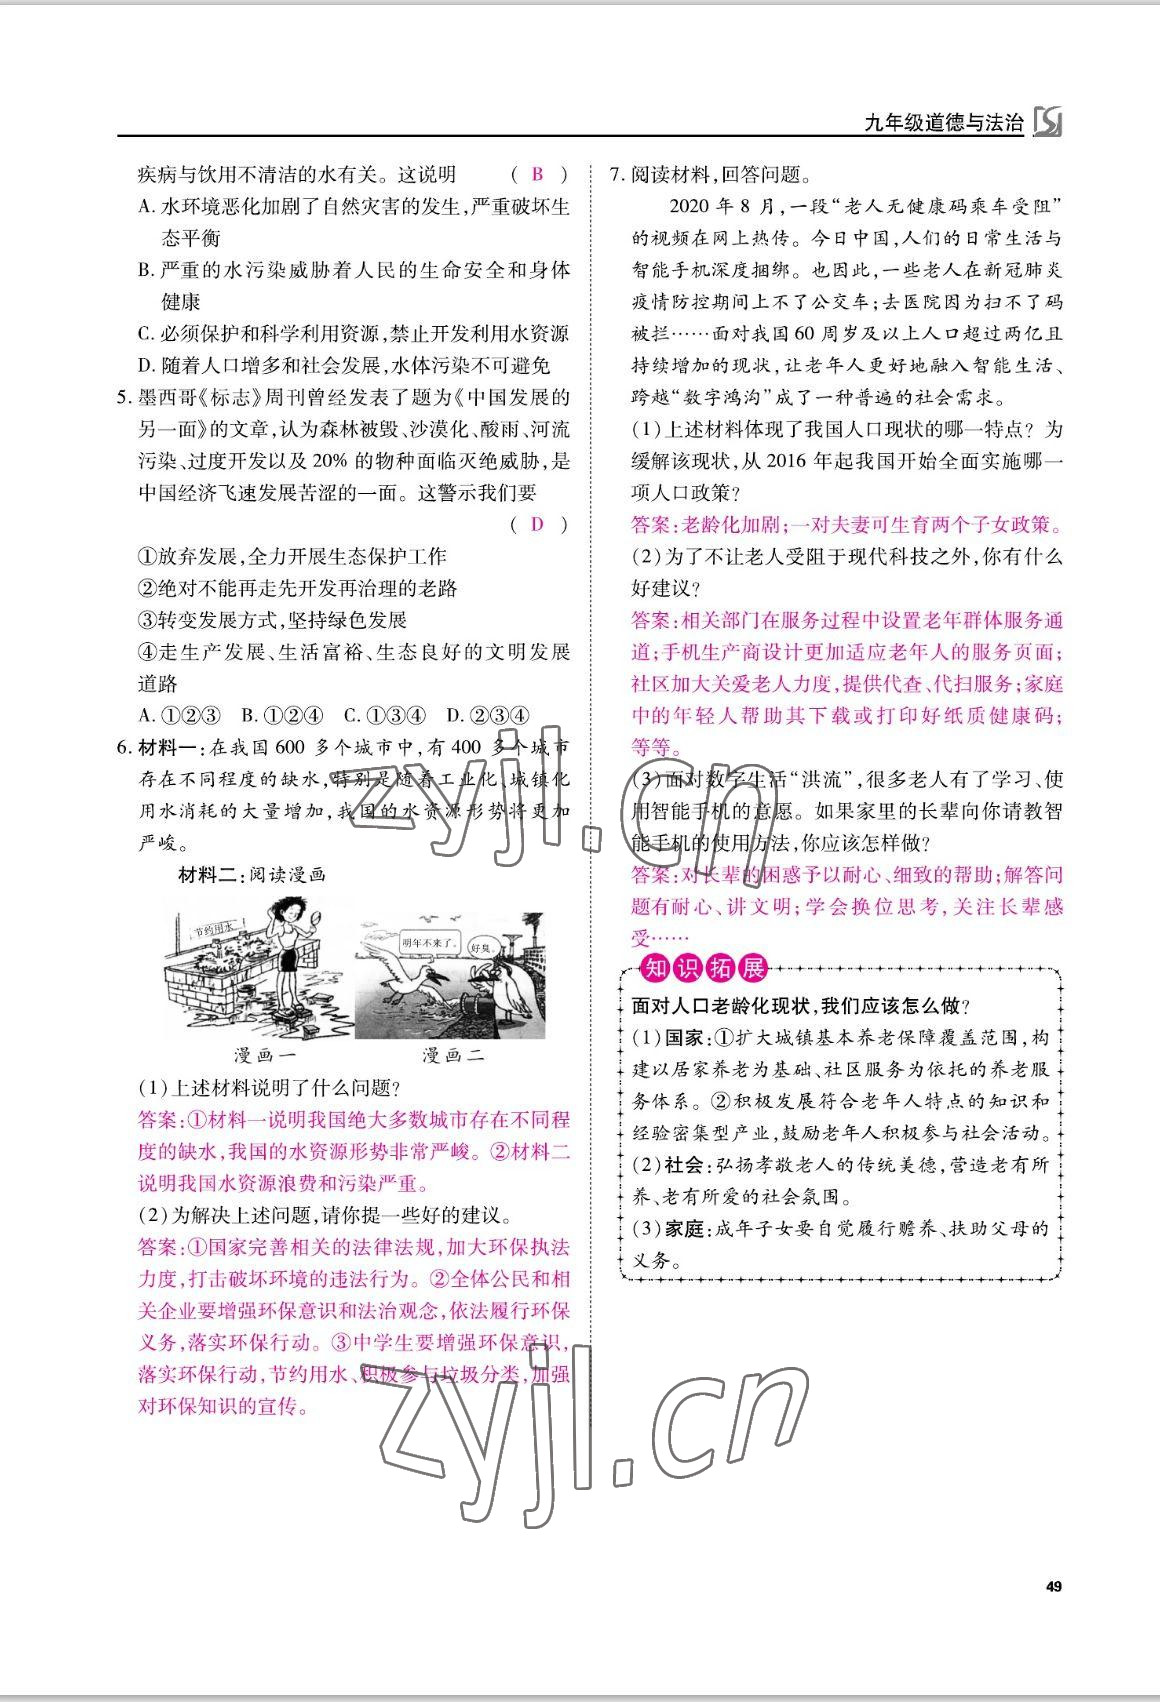 九年级道德与法治
疾病与饮用不清洁的水有关。这说明 ( B )
A. 水环境恶化加剧了自然灾害的发生,严重破坏生
态平衡
B. 严重的水污染威胁着人民的生命安全和身体
健康
C. 必须保护和科学利用资源,禁止开发利用水资源
D. 随着人口增多和社会发展,水体污染不可避免
5. 墨西哥《标志》周刊曾经发表了题为《中国发展的
另一面》的文章,认为森林被毁、沙漠化、酸雨、河流
污染、过度开发以及20%的物种面临灭绝威胁,是
中国经济飞速发展苦涩的一面。这警示我们要
( D )
①放弃发展,全力开展生态保护工作
②绝对不能再走先开发再治理的老路
③转变发展方式,坚持绿色发展
④走生产发展、生活富裕、生态良好的文明发展
道路
A. ①②③ B. ①②④ C. ①③④ D. ②③④
6. 材料一:在我国600多个城市中,有400多个城市
存在不同程度的缺水,特别是随着工业化、城镇化
用水消耗的大量增加,我国的水资源形势将更加
严峻。
材料二:阅读漫画
节约用水
明年不来了。
好臭。
漫画一 漫画二
(1)上述材料说明了什么问题?
答案:①材料一说明我国绝大多数城市存在不同程
度的缺水,我国的水资源形势非常严峻。②材料二
说明我国水资源浪费和污染严重。
(2)为解决上述问题,请你提一些好的建议。
答案:①国家完善相关的法律法规,加大环保执法
力度,打击破坏环境的违法行为。②全体公民和相
关企业要增强环保意识和法治观念,依法履行环保
义务,落实环保行动。③中学生要增强环保意识,
落实环保行动,节约用水、积极参与垃圾分类,加强
对环保知识的宣传。
7. 阅读材料,回答问题。
2020年8月,一段“老人无健康码乘车受阻”
的视频在网上热传。今日中国,人们的日常生活与
智能手机深度捆绑。也因此,一些老人在新冠肺炎
疫情防控期间上不了公交车;去医院因为扫不了码
被拦……面对我国60周岁及以上人口超过两亿且
持续增加的现状,让老年人更好地融入智能生活、
跨越“数字鸿沟”成了一种普遍的社会需求。
(1)上述材料体现了我国人口现状的哪一特点?为
缓解该现状,从2016年起我国开始全面实施哪一
项人口政策?
答案:老龄化加剧;一对夫妻可生育两个子女政策。
(2)为了不让老人受阻于现代科技之外,你有什么
好建议?
答案:相关部门在服务过程中设置老年群体服务通
道;手机生产商设计更加适应老年人的服务页面;
社区加大关爱老人力度,提供代查、代扫服务;家庭
中的年轻人帮助其下载或打印好纸质健康码;
等等。
(3)面对数字生活“洪流”,很多老人有了学习、使
用智能手机的意愿。如果家里的长辈向你请教智
能手机的使用方法,你应该怎样做?
答案:对长辈的困惑予以耐心、细致的帮助;解答问
题有耐心、讲文明;学会换位思考,关注长辈感
受……
知识拓展
面对人口老龄化现状,我们应该怎么做?
(1)国家:①扩大城镇基本养老保障覆盖范围,构
建以居家养老为基础、社区服务为依托的养老服
务体系。②积极发展符合老年人特点的知识和
经验密集型产业,鼓励老年人积极参与社会活动。
(2)社会:弘扬孝敬老人的传统美德,营造老有所
养、老有所爱的社会氛围。
(3)家庭:成年子女要自觉履行赡养、扶助父母的
义务。
zyjl.cn
zyjl.cn
49